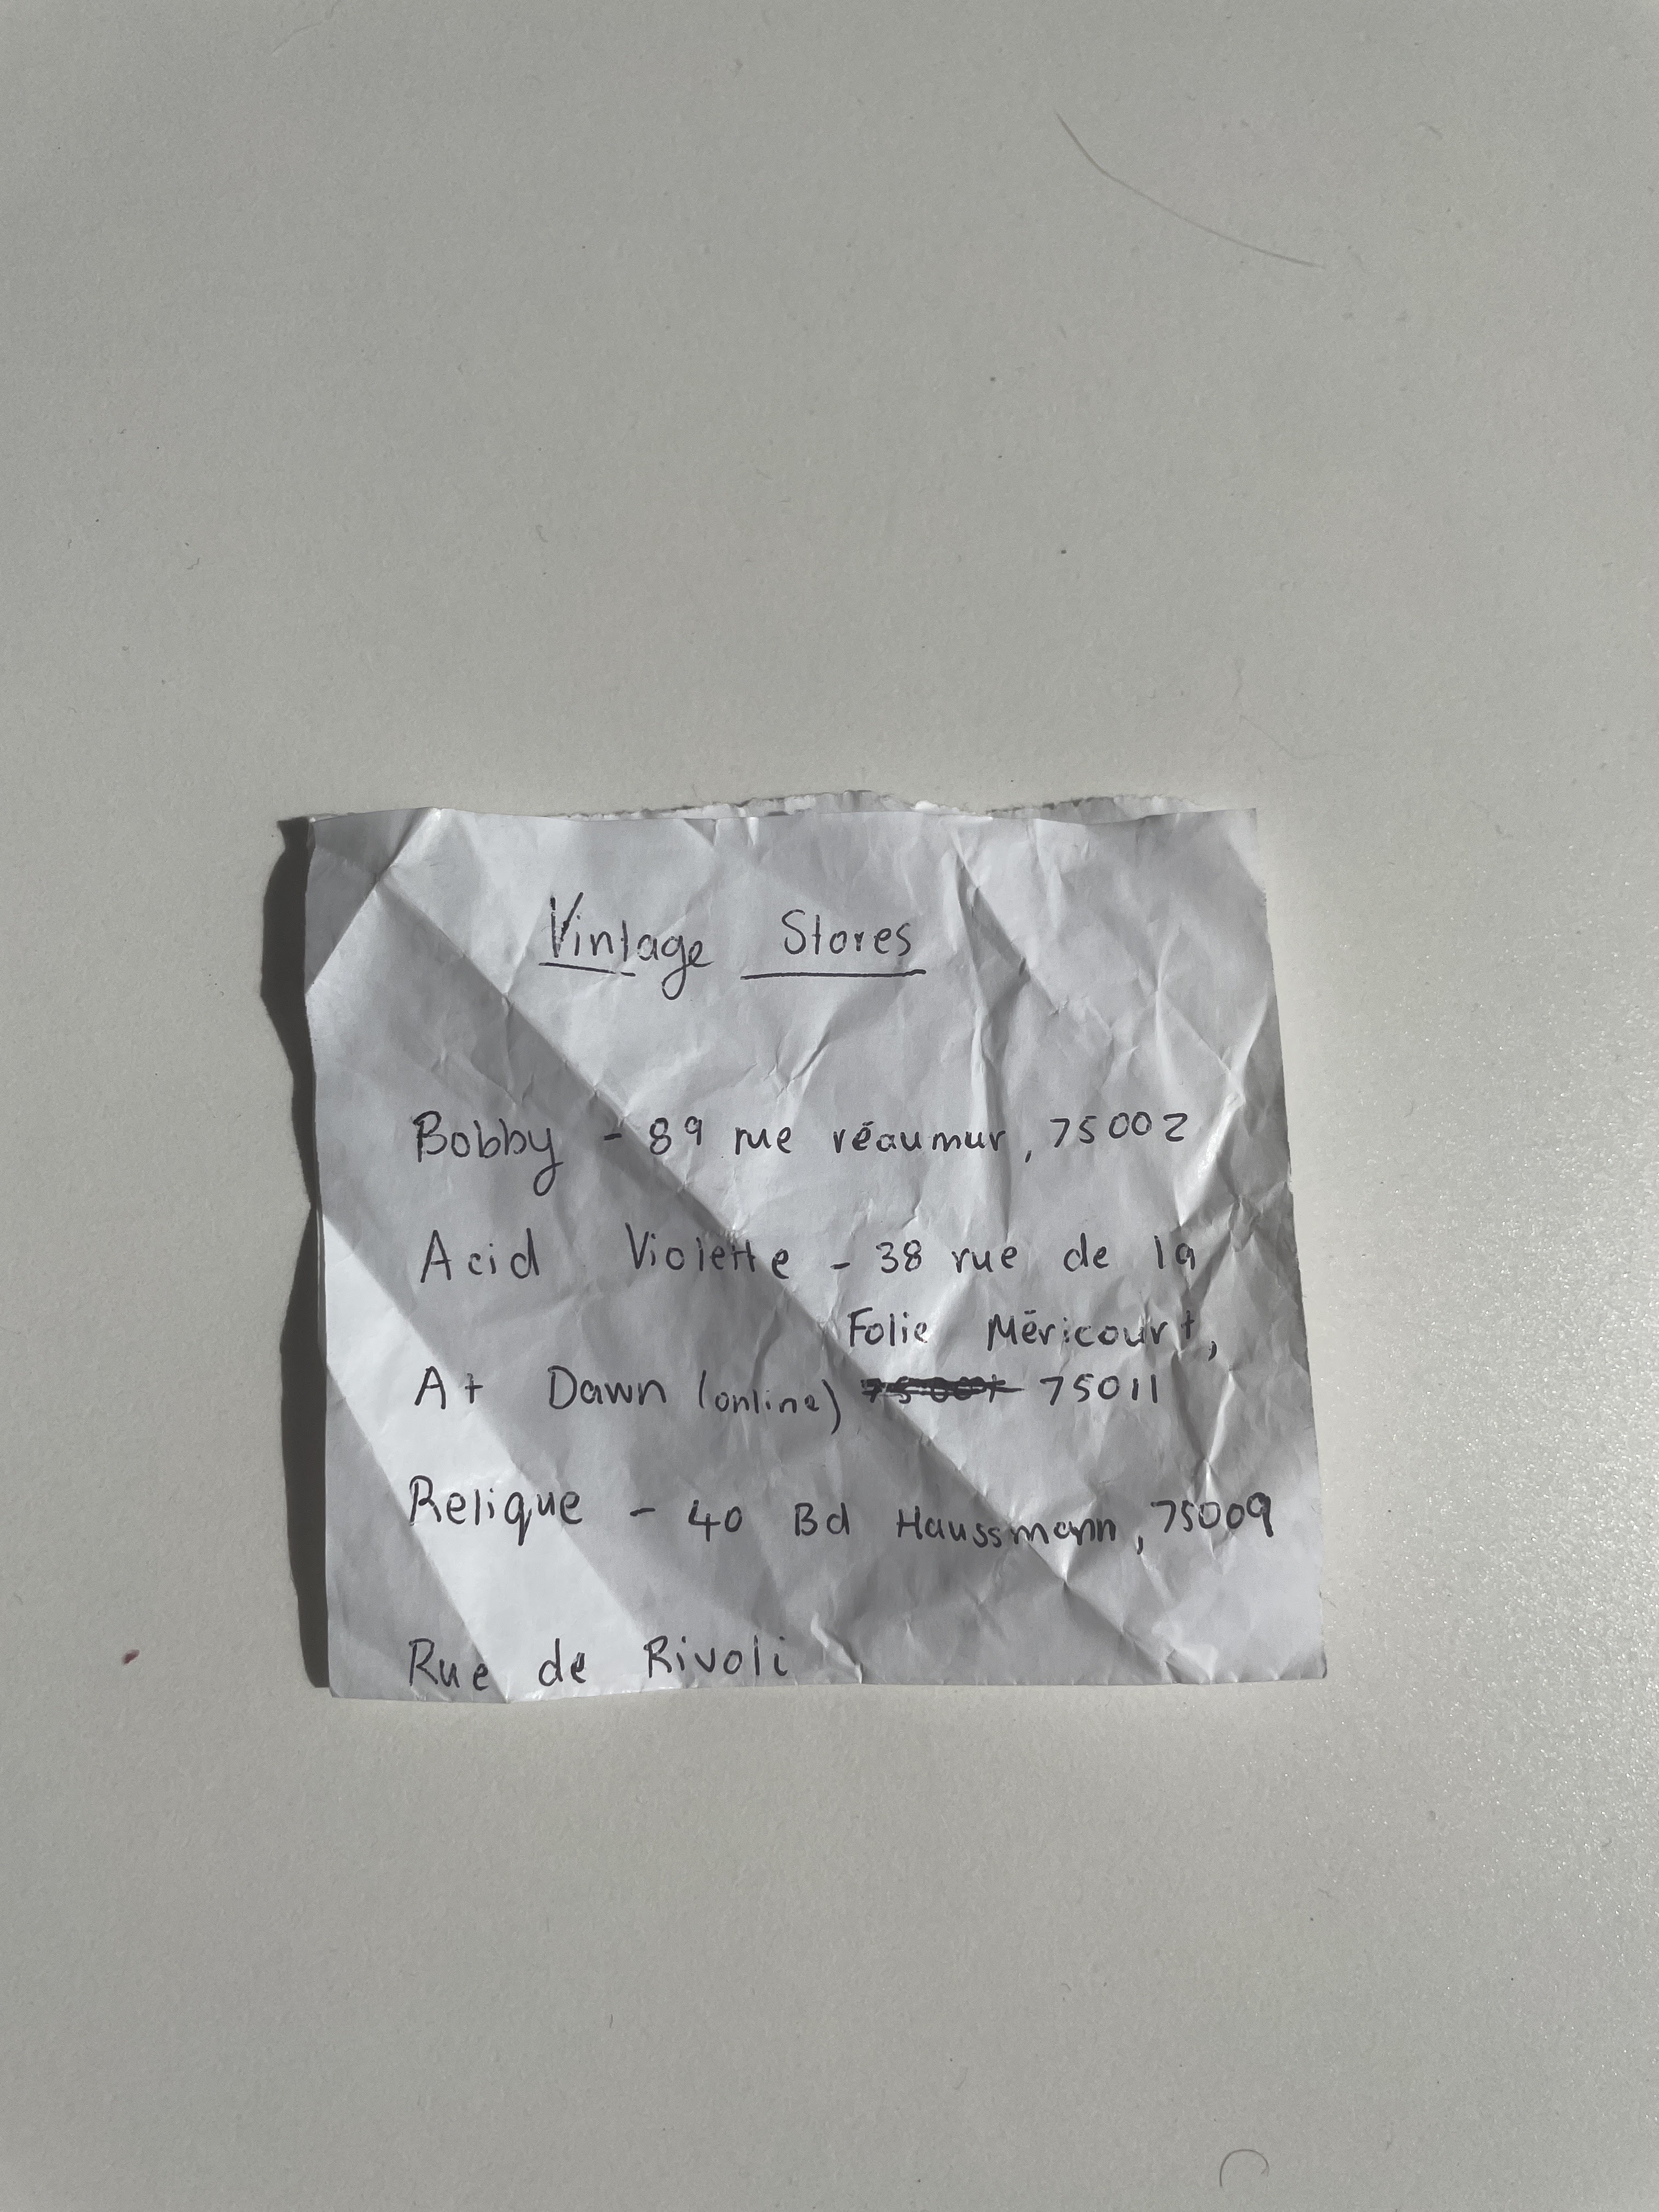 Vintage Stores
Bobby - 89 rue réaumur, 75002
Acid Violette - 38 rue de la
Folie Méricourt,
At Dawn (online) 75011
Relique - 40 Bd Haussmann, 75009
Rue de Rivoli